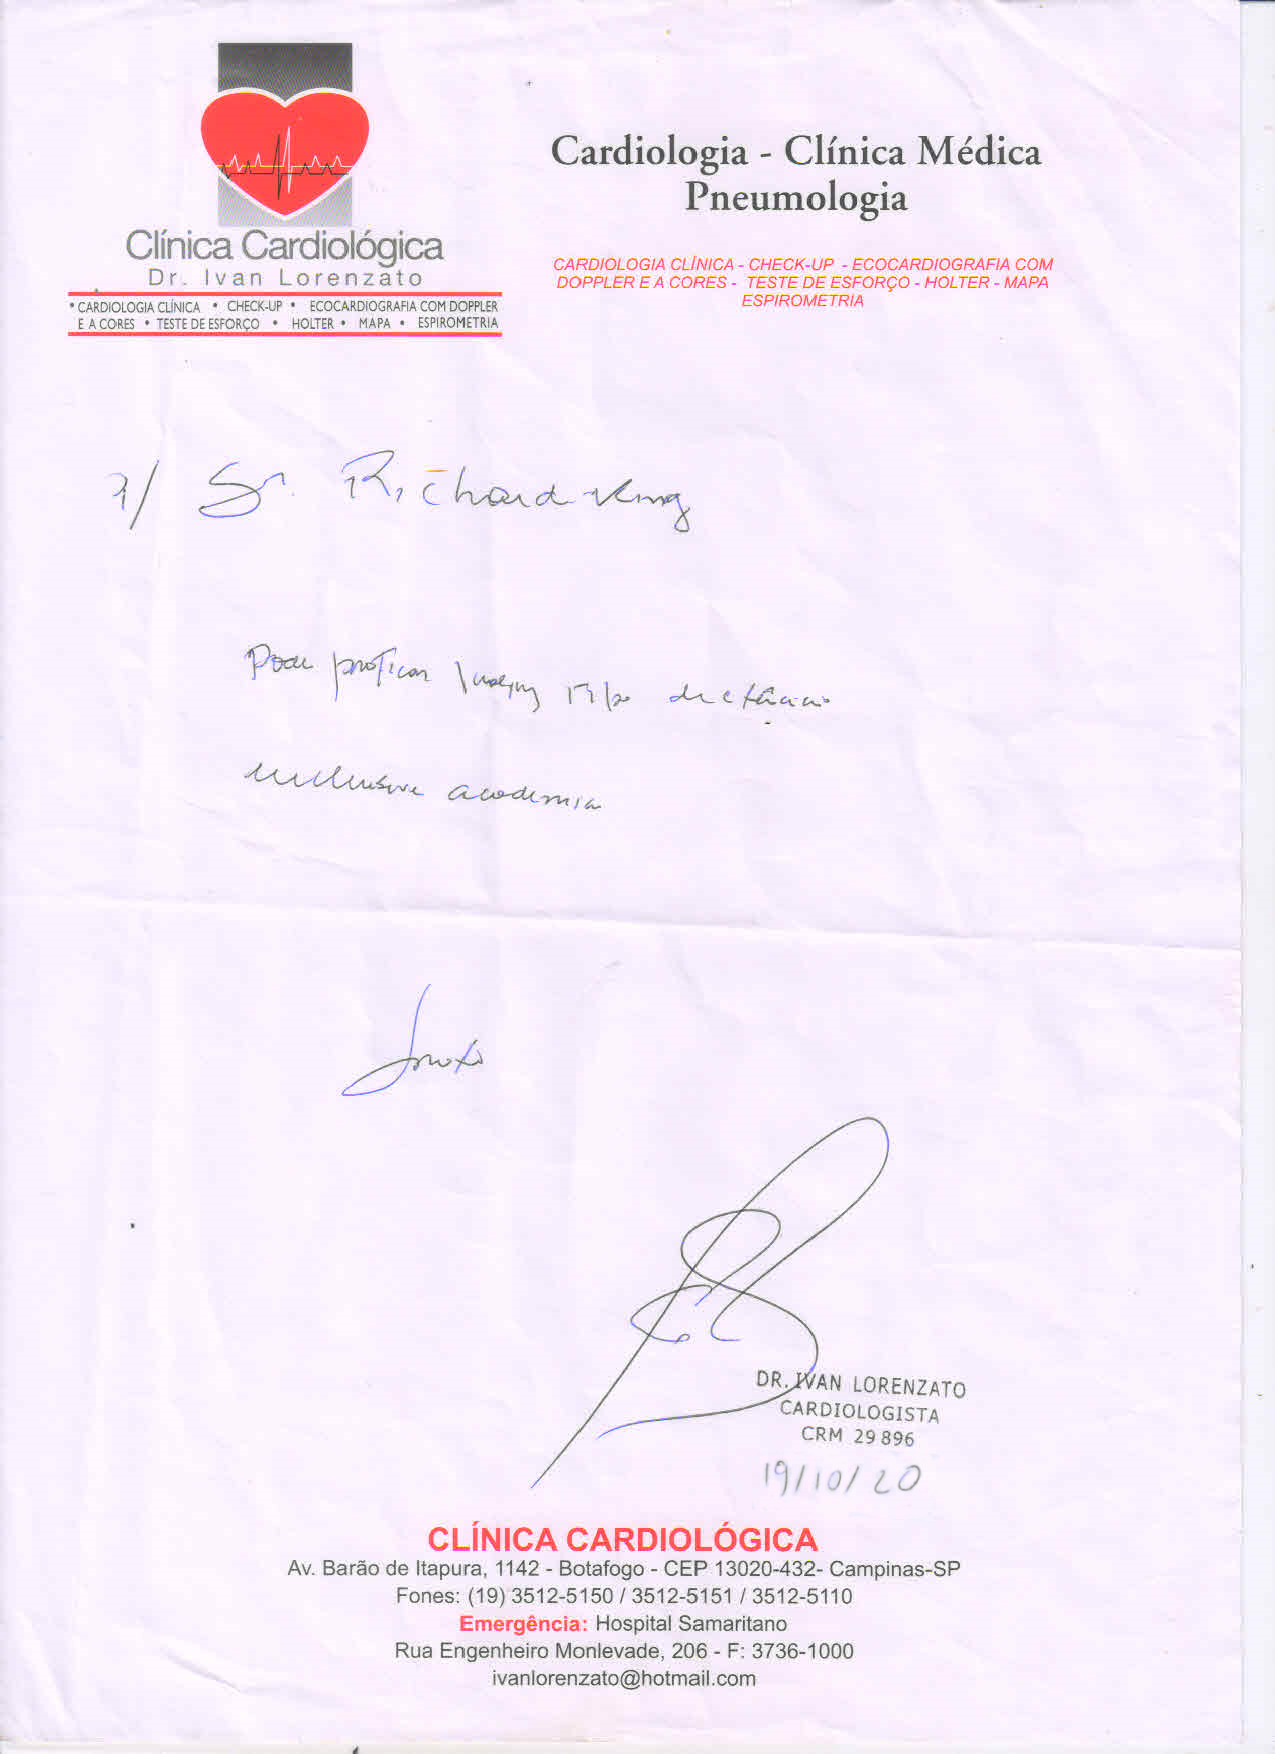 Clínica Cardiológica
Dr. Ivan Lorenzato
• CARDIOLOGIA CLÍNICA • CHECK-UP • ECOCARDIOGRAFIA COM DOPPLER
E A CORES • TESTE DE ESFORÇO • HOLTER • MAPA • ESPIROMETRIA
Cardiologia - Clínica Médica
Pneumologia
CARDIOLOGIA CLÍNICA - CHECK-UP - ECOCARDIOGRAFIA COM
DOPPLER E A CORES - TESTE DE ESFORÇO - HOLTER - MAPA
ESPIROMETRIA
P/ Sr. Richard King
Pode praticar tipo de
inclusive academia
DR. IVAN LORENZATO
CARDIOLOGISTA
CRM 29 896
19/10/20
CLÍNICA CARDIOLÓGICA
Av. Barão de Itapura, 1142 - Botafogo - CEP 13020-432- Campinas-SP
Fones: (19) 3512-5150 / 3512-5151 / 3512-5110
Emergência: Hospital Samaritano
Rua Engenheiro Monlevade, 206 - F: 3736-1000
ivanlorenzato@hotmail.com